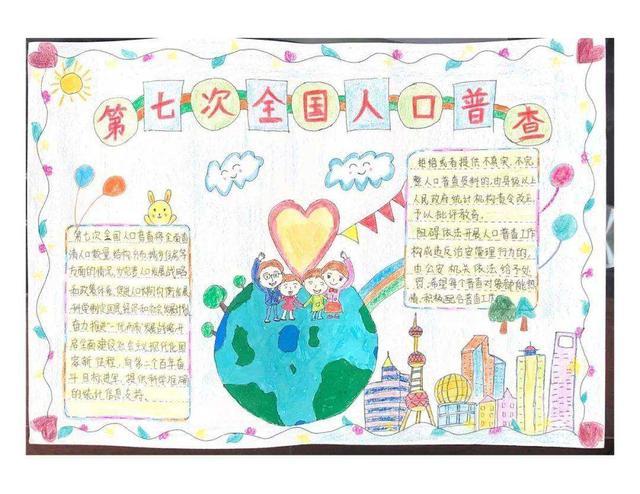 第七次全国人口普查
第七次全国人口普查将全面查
清人口数量、结构、分布、城乡住房等
方面的情况,为完善人口发展战略
和政策体系,促进人口长期均衡发展,
科学制定国民经济和社会发展规划,
奋力推进
启全面建设社会主义现代化国
家新征程,向第二个百年奋
斗目标进军,提供科学准确
的统计信息支持。
拒绝或者提供不真实、不完
整人口普查资料的,由县级以上
人民政府统计机构责令改正,
予以批评教育。
阻碍依法开展人口普查工作,
构成违反治安管理行为的,
由公安机关依法给予处
罚,希望每个普查对象都能热
情、积极配合普查工作。